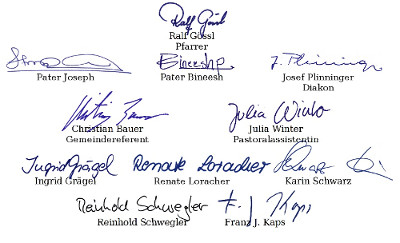 Ralf Gössl
Ralf Gössl
Pfarrer
Bineesh
Pater Joseph
Pater Bineesh
J. Plinninger
Josef Plinninger
Diakon
Christian Bauer
Christian Bauer
Gemeindereferent
Julia Winter
Julia Winter
Pastoralassistentin
Ingrid Grägel
Ingrid Grägel
Renate Loracher
Renate Loracher
Karin Schwarz
Reinhold Schwegler
Reinhold Schwegler
F. J. Kaps
Franz J. Kaps